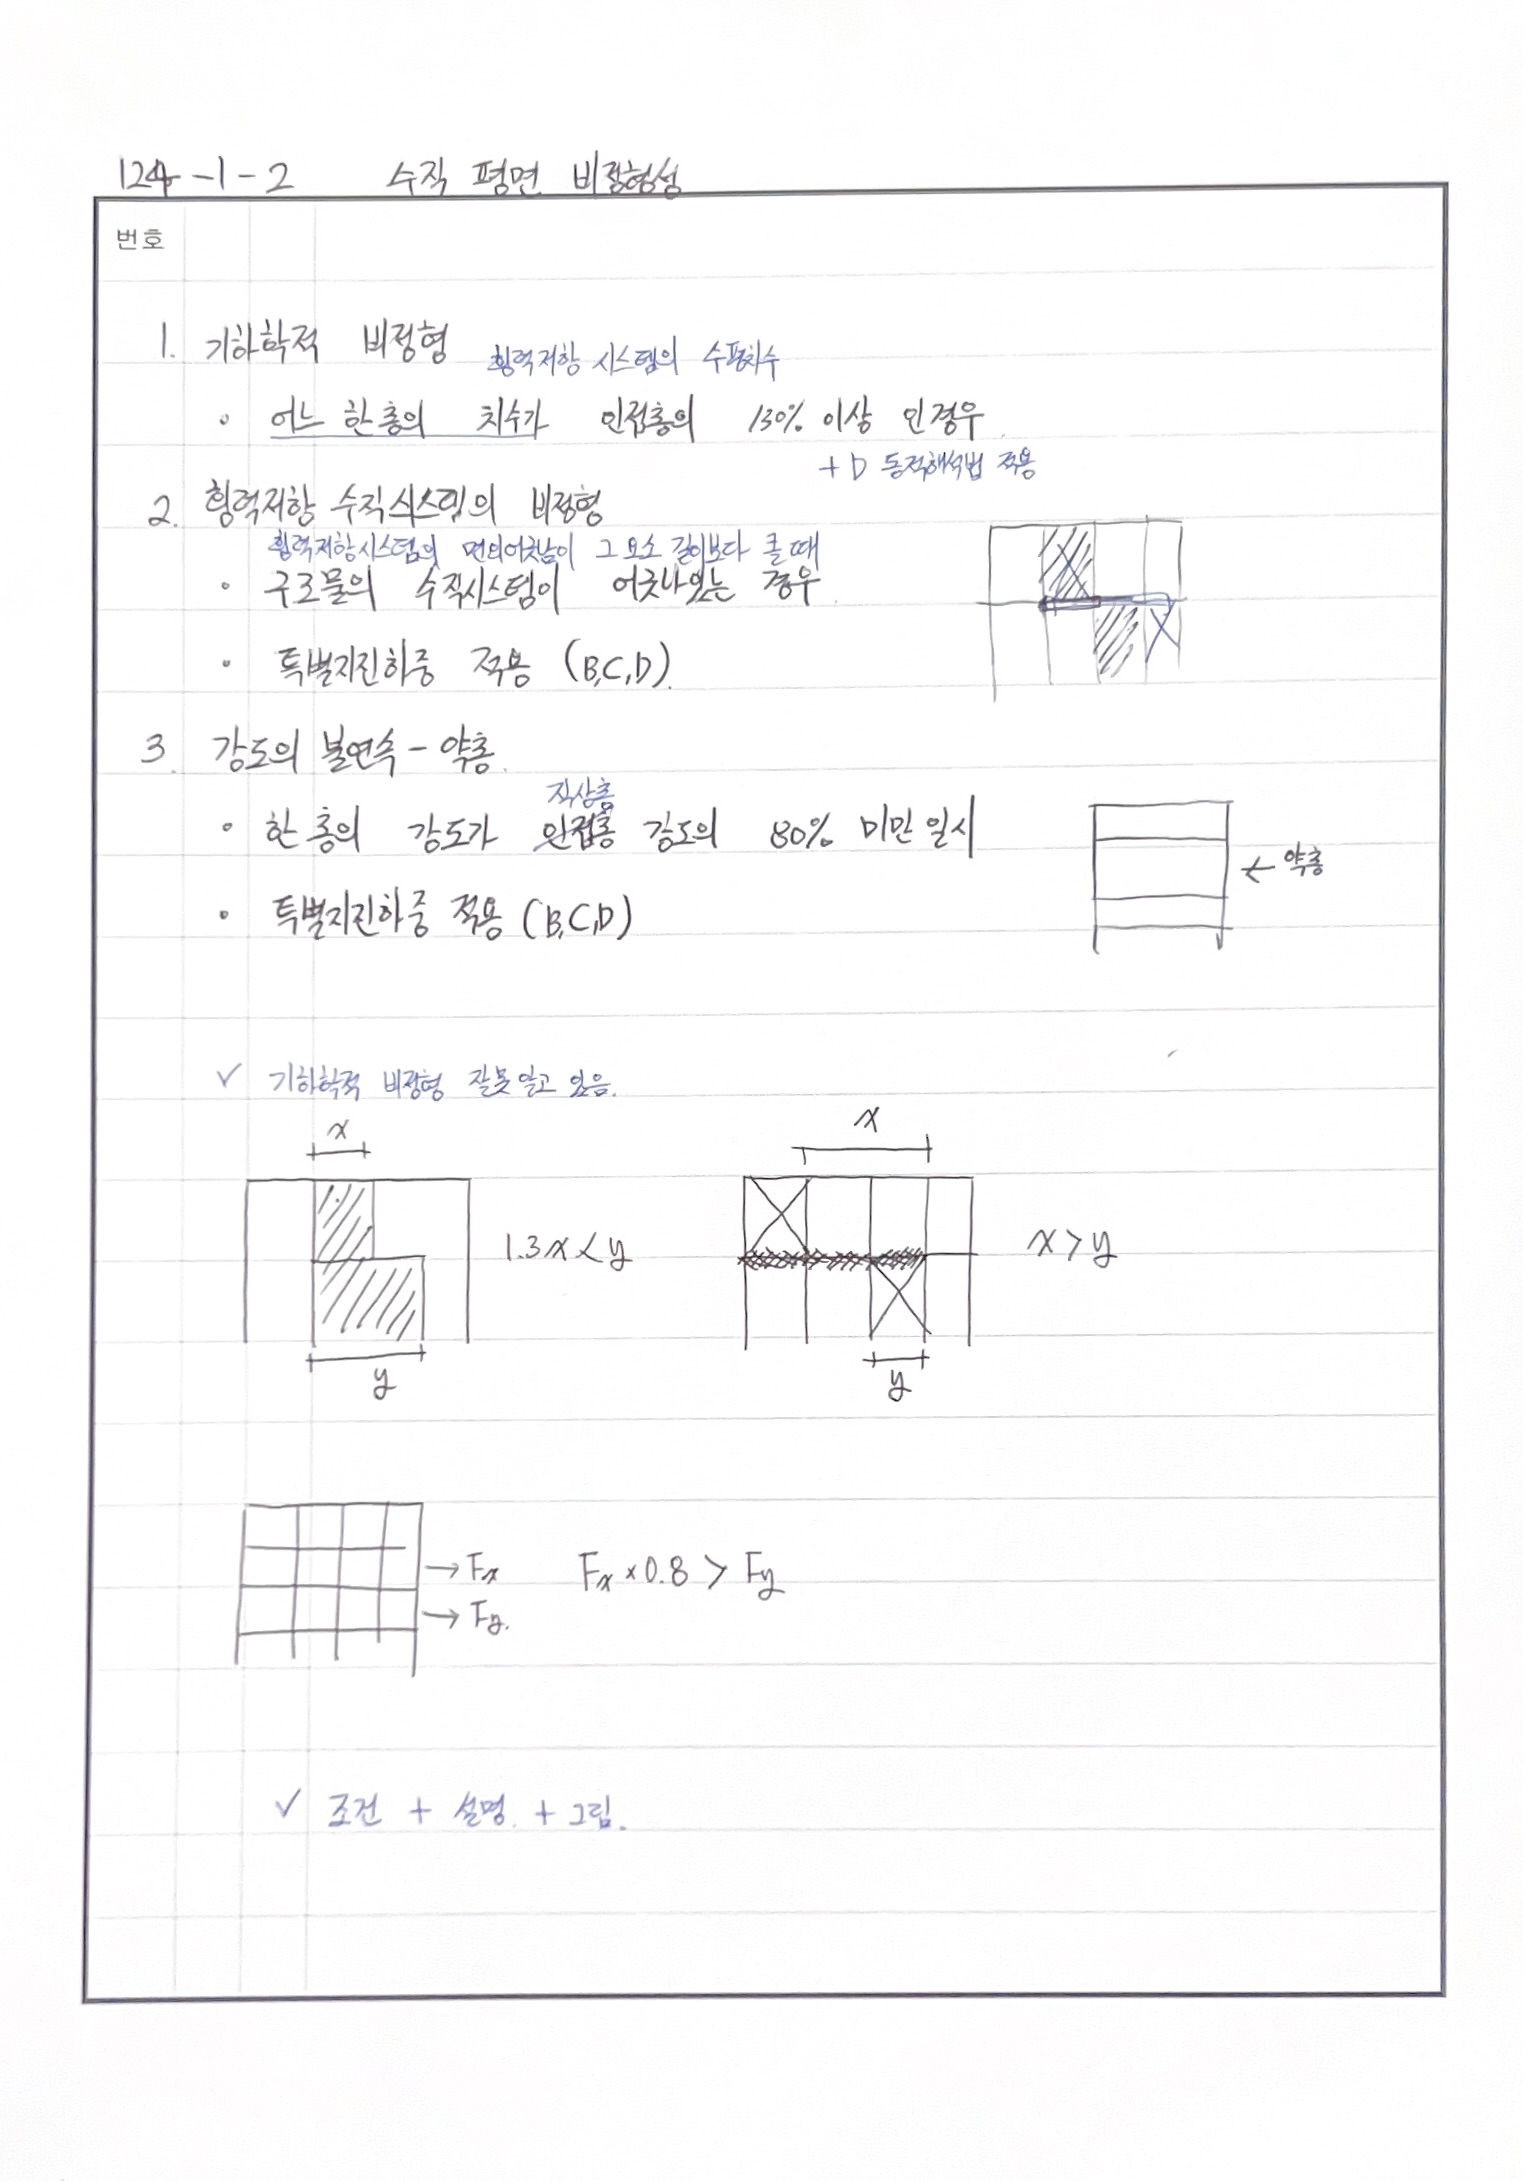 124-1-2 수직 평면 비정형성
번호
1. 기하학적 비정형
횡력저항 시스템의 수평치수
• 어느 한층의 치수가 인접층의 130% 이상 인경우
+ D 동적해석법 적용
2. 횡력저항 수직시스템의 비정형
횡력저항시스템의 면의어긋남이 그 요소 길이보다 클 때
• 구조물의 수직시스템이 어긋나있는 경우.
• 특별지진하중 적용 (B,C,D).
3. 강도의 불연속 - 약층.
직상층
• 한 층의 강도가 인접층 강도의 80% 미만 일시
← 약층
• 특별지진하중 적용 (B,C,D)
✓ 기하학적 비정형 잘못 알고 있음.
x x
1.3x < y x > y
y y
→ Fx Fx × 0.8 > Fy
→ Fy.
✓ 조건 + 설명. + 그림.